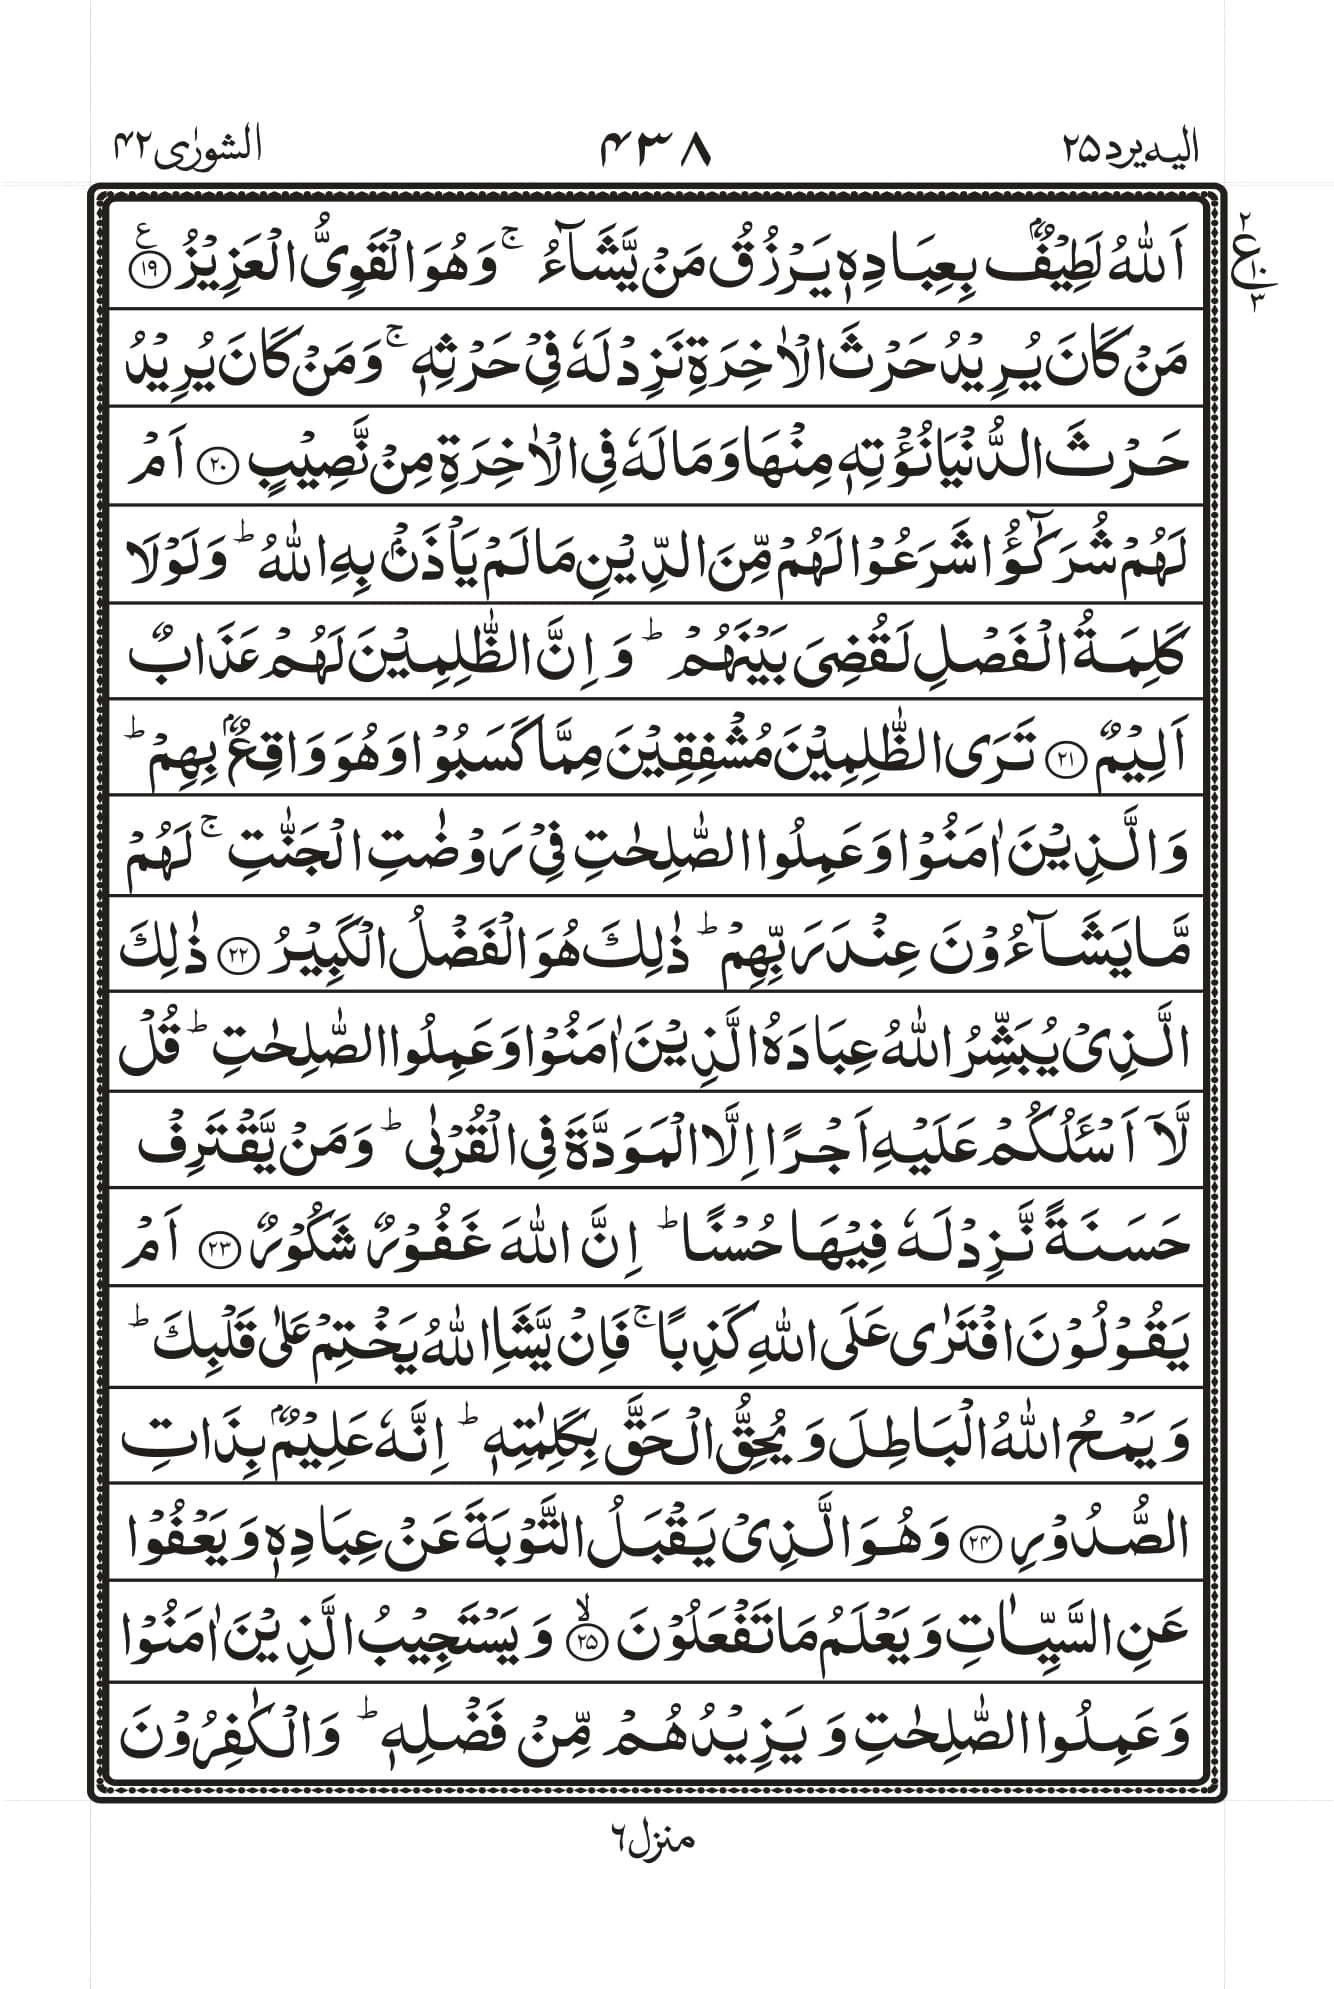 الیه یرد ۲۵
۴۳۸
الشورٰی ۴۲
اَللّٰهُ لَطِیْفٌۢ بِعِبَادِهٖ یَرْزُقُ مَنْ یَّشَآءُ ۚ وَهُوَ الْقَوِیُّ الْعَزِیْزُ ﴿۱۹﴾ ع
۲
ع
۱۰
۳
مَنْ كَانَ یُرِیْدُ حَرْثَ الْاٰخِرَةِ نَزِدْ لَهٗ فِیْ حَرْثِهٖ ۚ وَمَنْ كَانَ یُرِیْدُ
حَرْثَ الدُّنْیَا نُؤْتِهٖ مِنْهَا وَمَا لَهٗ فِی الْاٰخِرَةِ مِنْ نَّصِیْبٍ ﴿۲۰﴾ اَمْ
لَهُمْ شُرَكٰٓؤُا شَرَعُوْا لَهُمْ مِّنَ الدِّیْنِ مَا لَمْ یَاْذَنْۢ بِهِ اللّٰهُ ؕ وَلَوْلَا
كَلِمَةُ الْفَصْلِ لَقُضِیَ بَیْنَهُمْ ؕ وَاِنَّ الظّٰلِمِیْنَ لَهُمْ عَذَابٌ
اَلِیْمٌ ﴿۲۱﴾ تَرَی الظّٰلِمِیْنَ مُشْفِقِیْنَ مِمَّا كَسَبُوْا وَهُوَ وَاقِعٌۢ بِهِمْ ؕ
وَالَّذِیْنَ اٰمَنُوْا وَعَمِلُوا الصّٰلِحٰتِ فِیْ رَوْضٰتِ الْجَنّٰتِ ۚ لَهُمْ
مَّا یَشَآءُوْنَ عِنْدَ رَبِّهِمْ ؕ ذٰلِكَ هُوَ الْفَضْلُ الْكَبِیْرُ ﴿۲۲﴾ ذٰلِكَ
الَّذِیْ یُبَشِّرُ اللّٰهُ عِبَادَهُ الَّذِیْنَ اٰمَنُوْا وَعَمِلُوا الصّٰلِحٰتِ ؕ قُلْ
لَّاۤ اَسْـَٔلُكُمْ عَلَیْهِ اَجْرًا اِلَّا الْمَوَدَّةَ فِی الْقُرْبٰی ؕ وَمَنْ یَّقْتَرِفْ
حَسَنَةً نَّزِدْ لَهٗ فِیْهَا حُسْنًا ؕ اِنَّ اللّٰهَ غَفُوْرٌ شَكُوْرٌ ﴿۲۳﴾ اَمْ
یَقُوْلُوْنَ افْتَرٰی عَلَی اللّٰهِ كَذِبًا ۚ فَاِنْ یَّشَاِ اللّٰهُ یَخْتِمْ عَلٰی قَلْبِكَ ؕ
وَیَمْحُ اللّٰهُ الْبَاطِلَ وَیُحِقُّ الْحَقَّ بِكَلِمٰتِهٖ ؕ اِنَّهٗ عَلِیْمٌۢ بِذَاتِ
الصُّدُوْرِ ﴿۲۴﴾ وَهُوَ الَّذِیْ یَقْبَلُ التَّوْبَةَ عَنْ عِبَادِهٖ وَیَعْفُوْا
عَنِ السَّیِّاٰتِ وَیَعْلَمُ مَا تَفْعَلُوْنَ ۙ﴿۲۵﴾ وَیَسْتَجِیْبُ الَّذِیْنَ اٰمَنُوْا
وَعَمِلُوا الصّٰلِحٰتِ وَیَزِیْدُهُمْ مِّنْ فَضْلِهٖ ؕ وَالْكٰفِرُوْنَ
منزل ٦